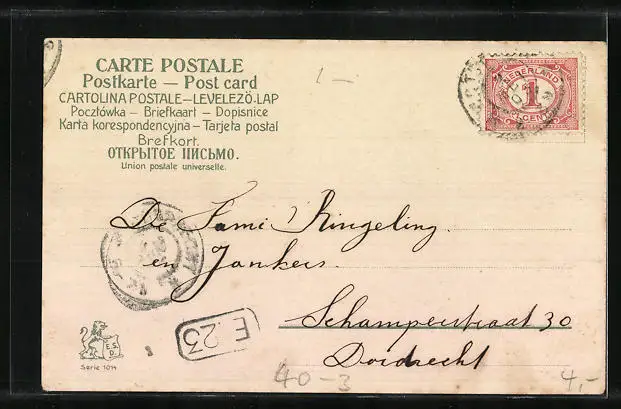 CARTE POSTALE
Postkarte — Post card
CARTOLINA POSTALE—LEVELEZÖ-LAP
Pocztówka — Briefkaart — Dopisnice
Karta korespondencyjna — Tarjeta postal
Brefkort.
ОТКРЫТОЕ ПИСЬМО.
Union postale universelle.
1 —
NEDERLAND
1
CENT
De Fami Ringeling
en Jonkers.
Schamperstraat 30
Dordrecht
E.23
E.S.
D.
Serie 1014
40-3
4,-